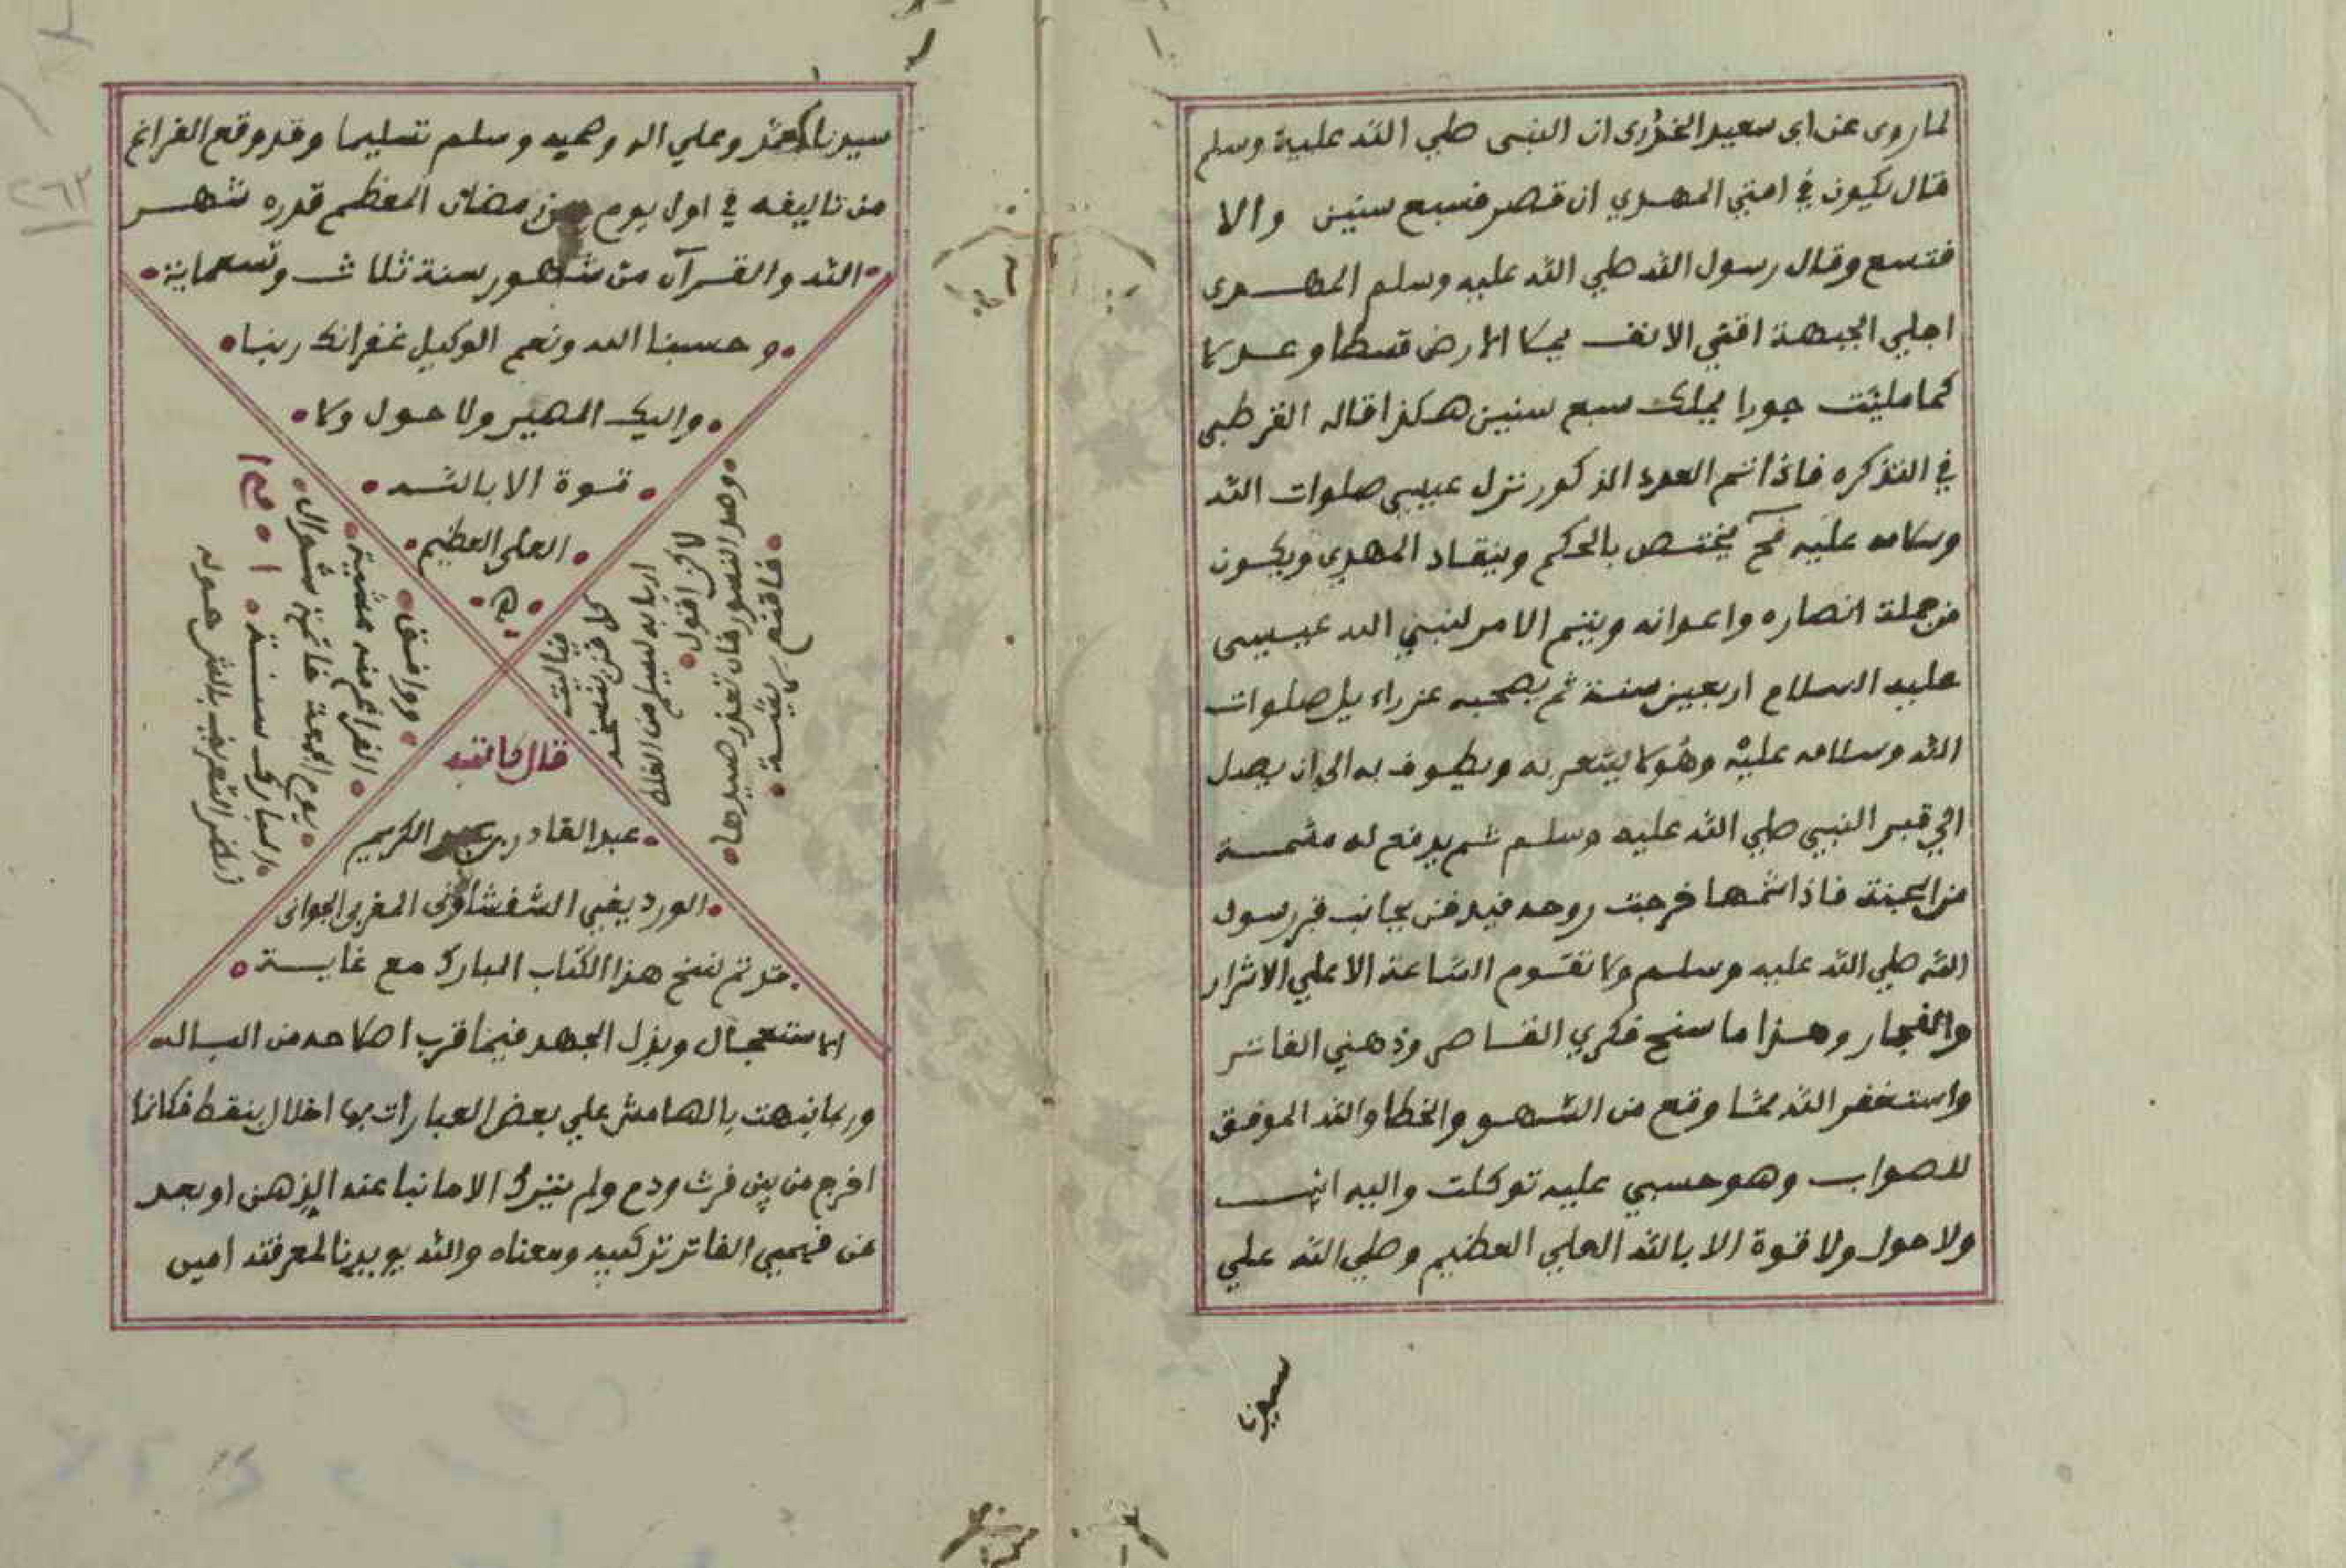 لما روى عن ابى سعيد الخذرى ان النبى صلي الله عليه وسلم
قال يكون في امتي المهدي ان قصر فسبع سنين والا
فتسع وقال رسول الله صلي الله عليه وسلم المهدى
اجلي الجبهة اقني الانف يملا الارض قسطا وعدلا
كما مليئت جورا يملك سبع سنين هكذا قاله القرطبي
في التذكره فاذا تم العدد المذكور نزل عيسى صلوات الله
وسلامه عليه فح يختص بالحكم وينقاد المهدي ويكون
من جملة انصاره واعوانه ويتم الامر لنبي الله عيسى
عليه السلام اربعين سنة ثم يصحبه عزراءيل صلوات
الله وسلامه عليه وهو لا يشعر به ويطوف به الى ان يصل
الي قبر النبي صلي الله عليه وسلم ثم يدفع له مشمة
من الجنة فاذا شمها خرجت روحه فيدفن بجانب قبر رسول
الله صلي الله عليه وسلم ولا تقوم الساعة الا علي الاشرار
والفجار وهذا ما سنح فكري القاصر وذهني الفاتر
واستغفر الله مما وقع من السهو والخطا والله الموفق
للصواب وهو حسبي عليه توكلت واليه انيب
ولا حول ولا قوة الا بالله العلي العظيم وصلي الله علي
سيدنا
سيدنا محمد وعلي اله وصحبه وسلم تسليما وقد وقع الفراغ
من تاليفه في اول يوم من رمضان المعظم قدره شهر
الله والقرآن من شهور سنة ثلاث وتسعماية
وحسبنا الله ونعم الوكيل غفرانك ربنا
واليك المصير ولا حول ولا
قوة الا بالله
العلي العظيم
ه
قال كاتبه
عبد القادر بن عبد الكريم
الورديغي الشفشاوني المغربي
قد تم نسخ هذا الكتاب المبارك مع غاية
الاستعجال وبذل الجهد فيما قرب اصلاحه من الساله
وربما نبهت بالهامش علي بعض العبارات بها اخلال بنقط فكانما
اخرج من بين فرث ودم ولم يترك الا ما نبا عنه الذهن او بعد
عن فهمي الفاتر تركيبه ومعناه والله يويدنا لمعرفته امين
ووافق
الفراغ منه عشية
يوم الجمعة خاتمة شوال
المبارك سنة